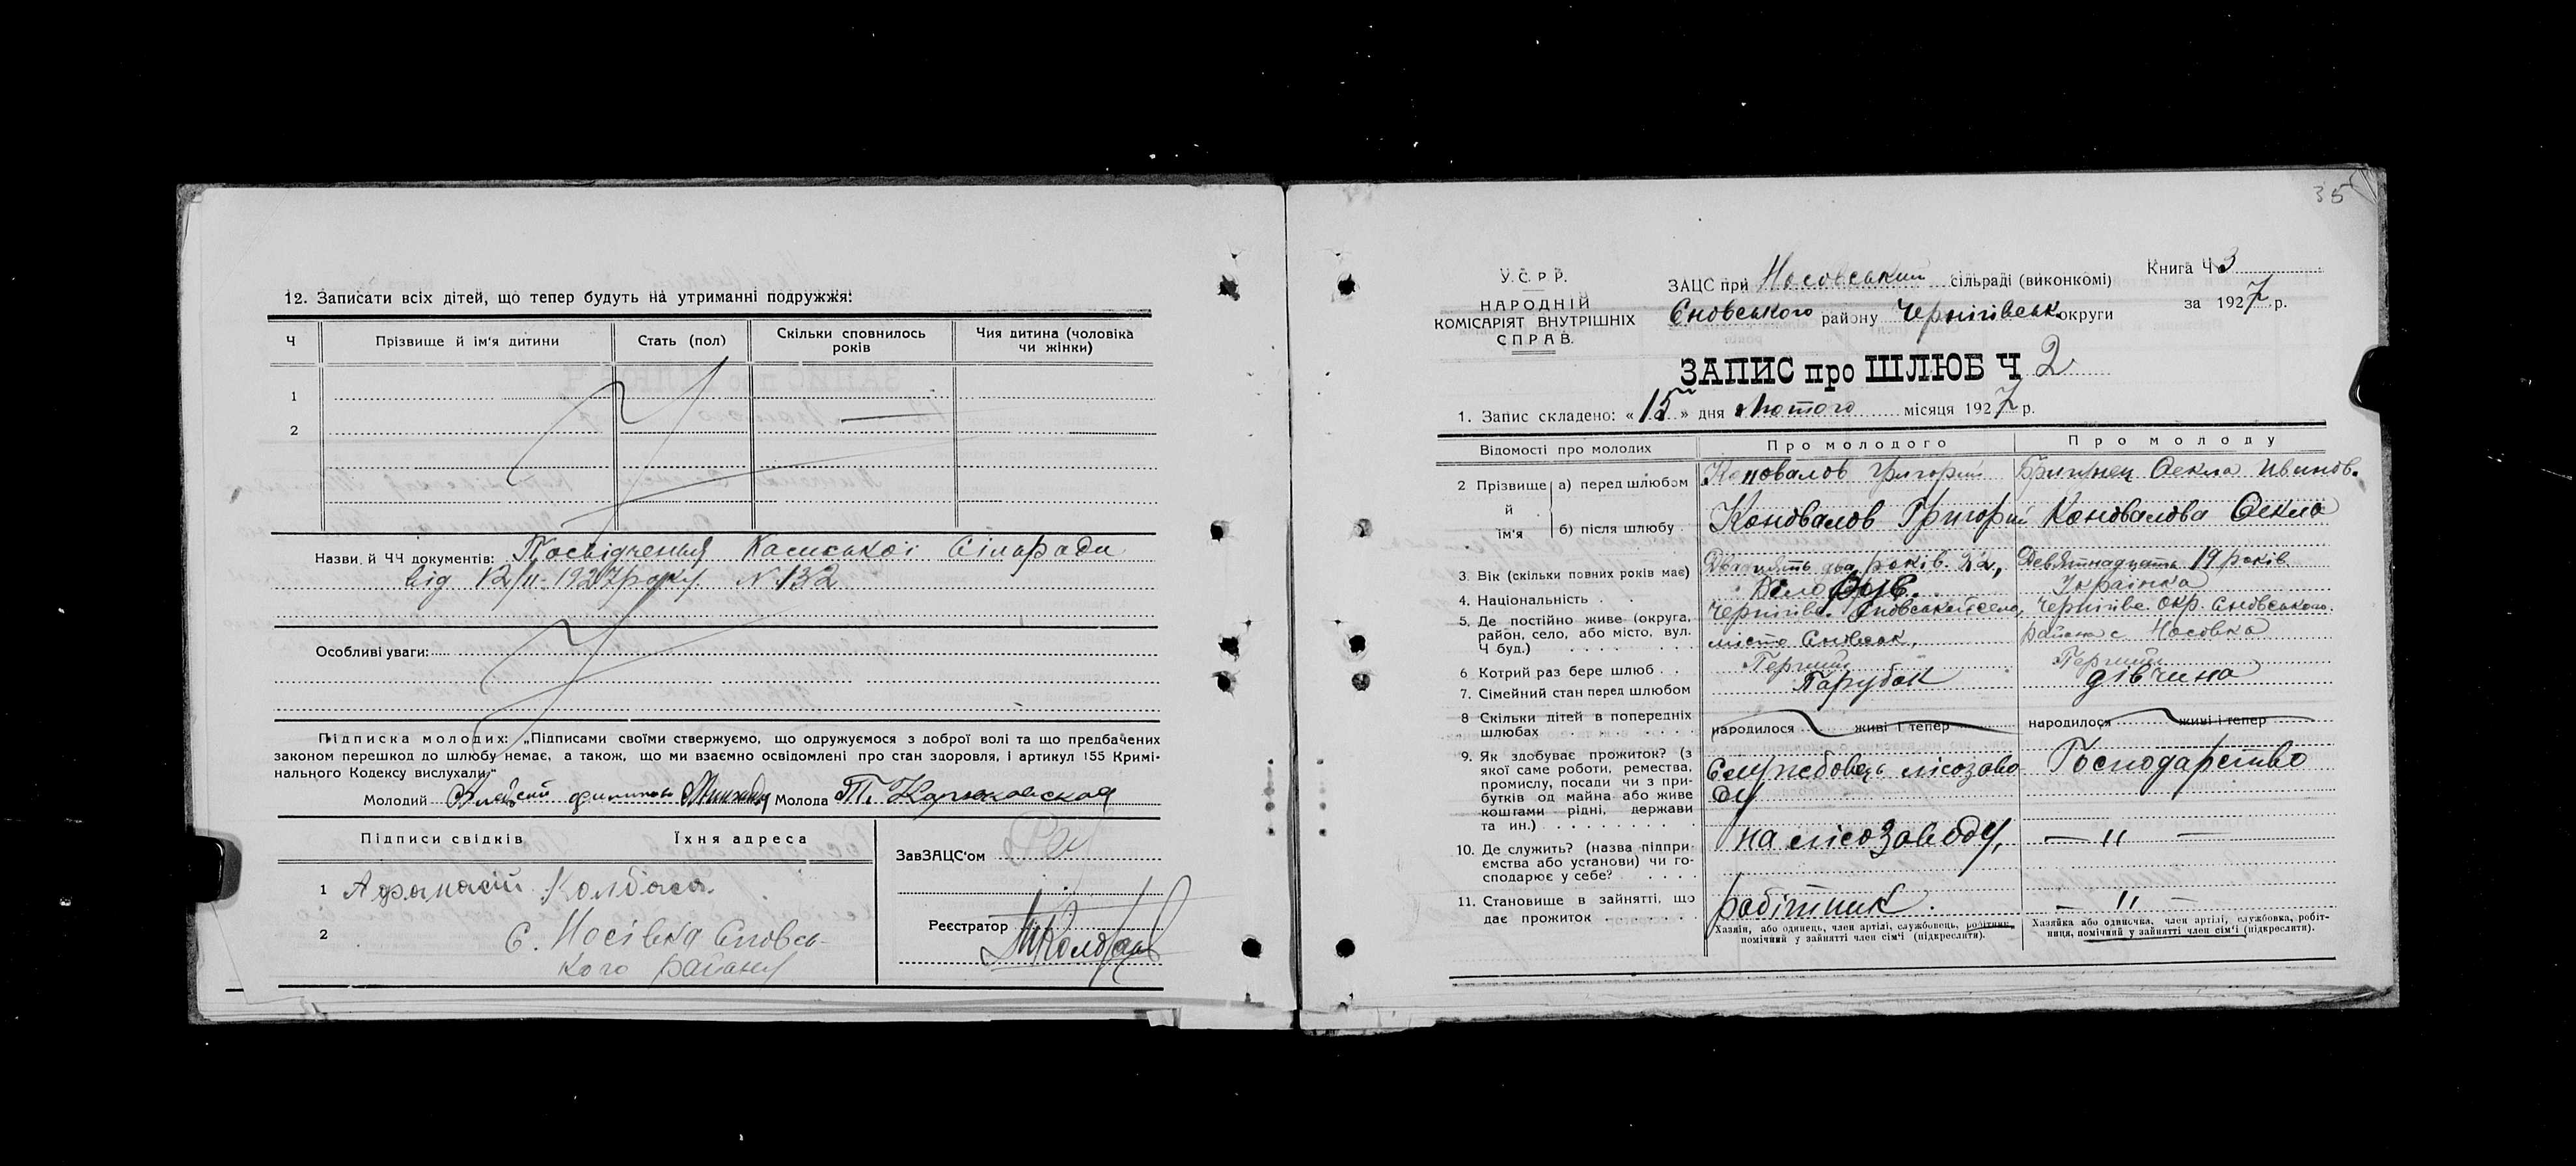 12. Записати всіх дітей, що тепер будуть на утриманні подружжя:
Ч Прізвище й ім'я дитини Стать (пол) Скільки сповнилось років Чия дитина (чоловіка чи жінки)
1
2
Назви й ЧЧ документів: Посвідчення Сільради
від 12/II-1927 року N 132
Особливі уваги:
Підписка молодих: „Підписами своїми стверджуємо, що одружуємося з доброї волі та що предбачених
законом перешкод до шлюбу немає, а також, що ми взаємно освідомлені про стан здоровля, і артикул 155 Кримі-
нального Кодексу вислухали;"
Молодий Молода Т.
Підписи свідків Їхня адреса
1 Афанасій Колбаса
2 С. Носівка Сновсь-
кого району
ЗавЗАЦС'ом
Реєстратор
35
У.С.Р.Р.
НАРОДНІЙ
КОМІСАРІЯТ ВНУТРІШНІХ
СПРАВ.
ЗАЦС при Носовський сільраді (виконкомі)
Сновського району Чернігівськ округи
Книга Ч 3
за 1927 р.
ЗАПИС про ШЛЮБ Ч 2
1. Запис складено: « 15 » дня Лютого місяця 1927 р.
Відомості про молодих Про молодого Про молоду
2 Прізвище й ім'я а) перед шлюбом Коновалов Григорий Оекла Иванов.
б) після шлюбу Коновалов Григорий Коновалова Оекла
3. Вік (скільки повних років має) Двадцять два років 22, Девятнадцать 19 років
4. Національність . . Українка
5. Де постійно живе (округа, район, село, або місто, вул. Ч буд.) місто Сновськ, Чернігів. Окр. Сновського района с Носовка
6 Котрий раз бере шлюб . . Перший Перший
7. Сімейний стан перед шлюбом Парубок дівчина
8 Скільки дітей в попередніх шлюбах народилося живі і тепер народилося живі і тепер
9. Як здобуває прожиток? (з якої саме роботи, ремества, промислу, посади чи з прибутків од майна або живе коштами рідні, держави та ин.) Службовець лісозаводу Господарство
10. Де служить? (назва підприємства або установи) чи господарює у себе? на лісозаводу, — " —
11. Становище в зайнятті, що дає прожиток робітник. — " —
Хазяїн, або одинець, член артілі, службовець, робітник, помічний у зайнятті член сім'ї (підкреслити).
Хазяйка або одиначка, член артілі, службовка, робітниця, помічний у зайнятті член сім'ї (підкреслити).